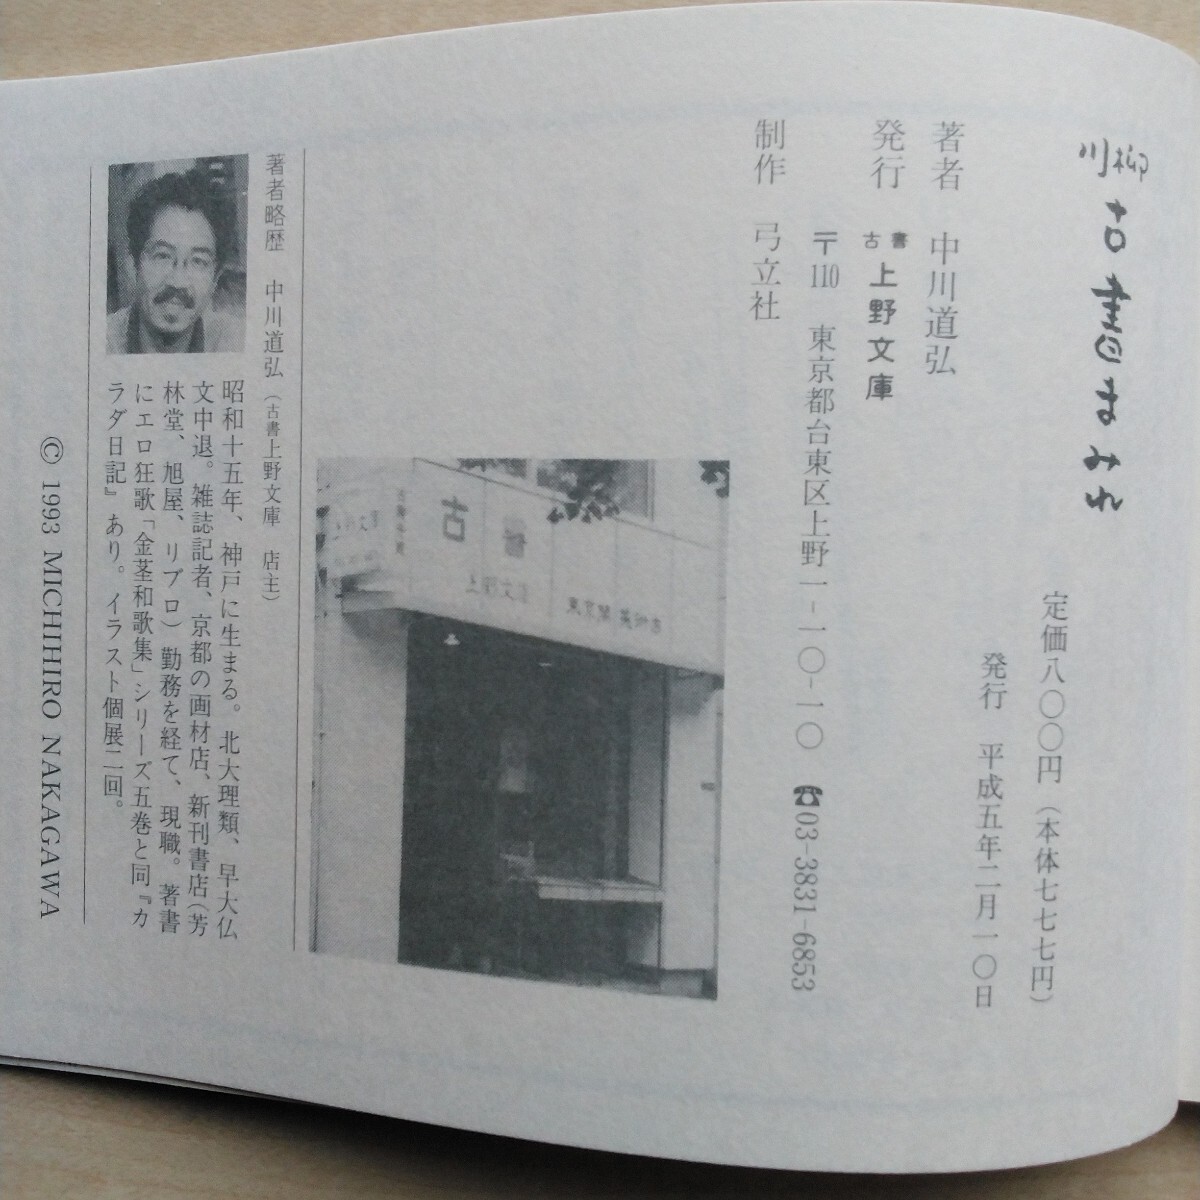 川柳
古書まみれ
定価八〇〇円（本体七七七円）
発行　平成五年二月一〇日
著者　中川道弘
発行　古書　上野文庫
〒110　東京都台東区上野一-一〇-一〇　☎03-3831-6853
制作　弓立社
古書
上野文庫
東京閣 美術店
著者略歴　中川道弘（古書上野文庫　店主）
昭和十五年、神戸に生まる。北大理類、早大仏
文中退。雑誌記者、京都の画材店、新刊書店（芳
林堂、旭屋、リブロ）勤務を経て、現職。著書
にエロ狂歌「金茎和歌集」シリーズ五巻と同『カ
ラダ日記』あり。イラスト個展二回。
© 1993 MICHIHIRO NAKAGAWA